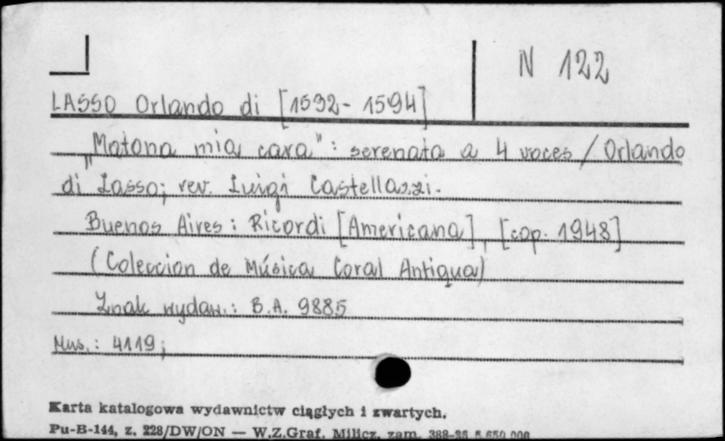 N 122
LASSO Orlando di [1592-1594]
„Matona mia cara": serenata a 4 voces / Orlando
di Lasso; rev. Luigi Castellazzi.
Buenos Aires: Ricordi [Americana], [cop. 1948]
(Coleccion de Música Coral Antiqua)
Znak wydaw.: B.A. 9885
Mus.: 4119;
Karta katalogowa wydawnictw ciągłych i zwartych.
Pu-B-144, z. 228/DW/ON — W.Z.Graf. Milicz, zam. 388-85 5.650.000